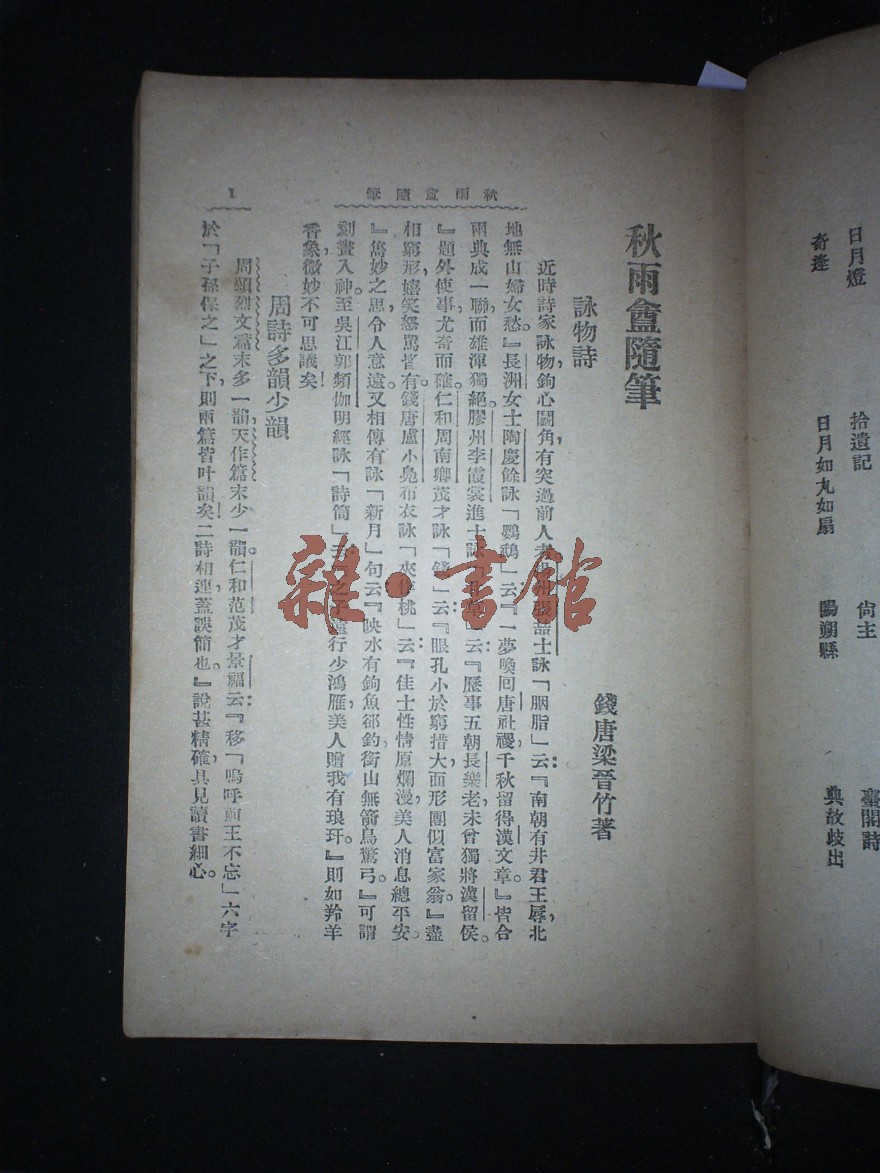 日月燈
拾遺記
尙主
臺閣詩
奇逢
日月如丸如扇
典故歧出
秋雨盦隨筆
秋雨盦隨筆
1
錢唐梁晉竹著
詠物詩
近時詩家詠物鉤心鬭角有突過前人者詠「胭脂」云『南朝有井君王辱北
地無山婦女愁』長洲女士陶慶餘詠「鸚鵡」云『一夢喚回唐社稷千秋留得漢文章。』皆合
兩典成一聯而雄渾獨絕膠州李霞裳進士詠云『歷事五朝長樂老未曾獨將漢留侯。
』題外使事尤奇而確。仁和周南卿茂才詠「錢」云『眼孔小於窮措大面形團似富家翁。』盡
相窮形嬉笑怒罵皆有。錢唐盧小鳧布衣詠「夾竹桃」云『佳士性情原爛漫美人消息總平安。
』雋妙之思令人意遠又相傳有詠「新月」句云『映水有鉤魚卻釣銜山無箭鳥驚弓。』可謂
刻畫入神。至吳江郭頻伽明經詠「詩筒」云之子遠行少鴻雁美人贈我有琅玕。』則如羚羊
香象微妙不可思議矣
周詩多韻少韻
周頌烈文篇末多一韻天作篇末少一韻。仁和范茂才景福云『移「嗚呼前王不忘」六字
於「子孫保之」之下則兩篇皆叶韻矣二詩相連蓋誤簡也。』說甚精確具見讀書細心。
雜·書館